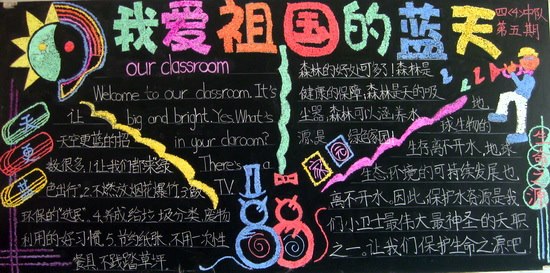 我爱祖国的蓝天
四(4)中队
第五期
our classroom
Welcome to our classroom. It's
big and bright. Yes. What's
in your clroom?
There's a
TV
天更蓝
让
天空更蓝的招
数很多:1.让我们皆柴绿
色出行"2.不燃放烟花爆竹3.做
环保的"迷". 4.养成给垃圾分类,废物
利用的好习惯. 5.节约纸张,不用一次性
餐具,不践踏草坪.
森林的好处可多了!森林是
健康的保障,森林是天的吸
尘器,森林可以涵养水
源,是
绿色家园
地
球生物的
生存离不开水,地球
生态环境的可持续发展也
离不开水。因此,保护水资源是我
们小卫士最伟大最神圣的天职
之一。让我们保护生命之源吧!
生命之源